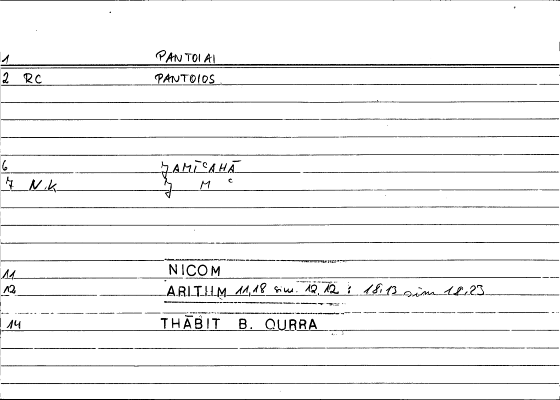 1 PANTOIAI
2 RC PANTOIOS
6 ǦAMĪʿAHĀ
7 N.K Ǧ M ʿ
11 NICOM
12 ARITHM 11,18 sim. 12,12 ; 18,13 sim 18,23
14 THĀBIT B. QURRA